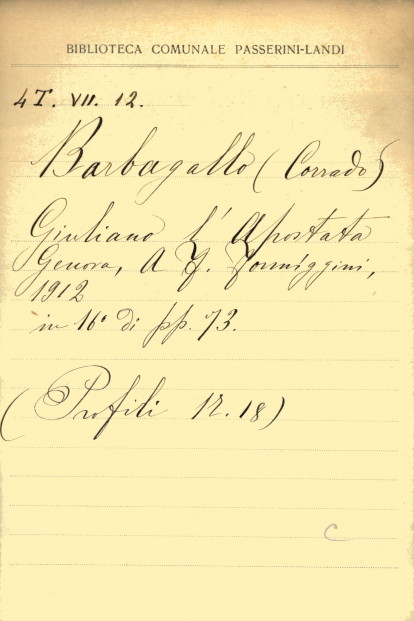 BIBLIOTECA COMUNALE PASSERINI-LANDI
4T. VII. 12.
Barbagallo (Corrado)
Giuliano l'Apostata
Genova, A. F. Formiggini,
1912
in 16° di pp. 73.
(Profili N. 18)
C